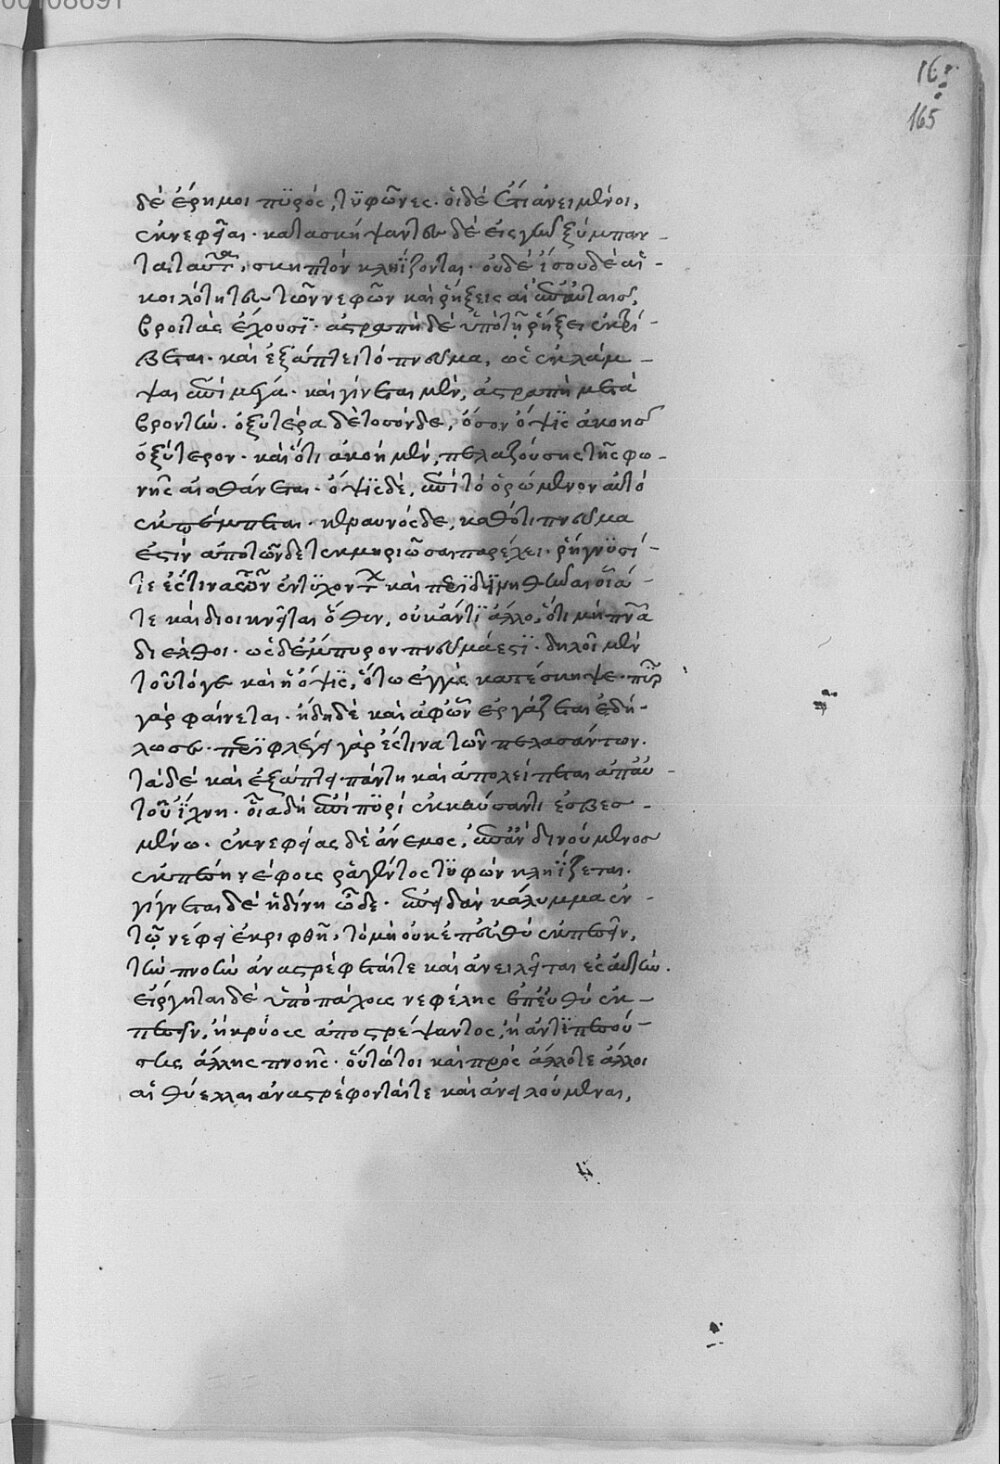 00108691
16
165
δὲ ἔρημοι πυρὸς, τυφῶνες· οἱ δὲ ἔτι ἀνειμένοι,
ἐκνεφίαι· κατασκήψαντα δὲ εἰς γῆν ξύμπαν-
τα ταῦτα, σκηπτὸν κληΐζονται. οὐδὲ ἴσου δὲ αἱ
κοιλότητες τῶν νεφῶν καὶ ῥήξεις αἱ ἐν αὐταῖς,
βροντὰς ἔχουσι· ἀστραπὴ δὲ ὑπὸ τῇ ῥήξει ἐκτρί-
βεται· καὶ ἐξάπτει τὸ πνεῦμα, ὡς ἐκλάμ-
ψαι μέγα· καὶ γίνεται μὲν, ἀστραπὴ μετὰ
βροντὴν· ὀξυτέρα δὲ τοσόνδε, ὅσον ὄψις ἀκοῆς
ὀξύτερον· καὶ ὅτι ἀκοὴ μὲν, πελαζούσης τῆς φω-
νῆς αἰσθάνεται· ὄψις δὲ, ἐπὶ τὸ ὁρώμενον αὐτὸ
ἐκπέμπεται· κεραυνὸς δὲ, καθότι πνεῦμα
ἐστὶν ἀπὸ τῶνδε τεκμηριῶσαι παρέχει· ῥήγνυσί-
τε ἔστιν ἃ τῶν ἐντυχόντων καὶ
τε καὶ διοικνεῖται ὅθεν, οὐκ ἄντι ἄλλο, ὅτι μὴ πνεῦμα
διέλθοι· ὡς δὲ ἔμπυρον πνεῦμά ἐστι· δηλοῖ μὲν
τοῦτό γε καὶ ἡ ὄψις, ὅτῳ ἐγγὺς κατέσκηψε· πῦρ
γὰρ φαίνεται· ἤδη δὲ καὶ ἀφ' ὧν ἐργάζεται ἐδή-
λωσε· περιφλέγει γὰρ ἔστιν ἃ τῶν πελασάντων.
τὰ δὲ καὶ ἐξάπτει πάντη καὶ ἀπολείπεται ἀπ' αὐ-
τοῦ ἴχνη· οἷα δὴ ἐπὶ πυρὶ ἐκκαύσαντι ἐσβεσ-
μένῳ· ἐκνεφίας δὲ ἄνεμος, ἐπὰν δινούμενος
ἐκπέσῃ νέφους ῥαγέντος τυφὼν κληΐζεται.
γίγνεται δὲ ἡ δίνη ὧδε· ἐπειδὰν κάλυμμα ἐν
τῷ νέφει ἐκριφθῇ, τὸ μὴ οὐκ ἐπ' εὐθὺ ἐκπεσεῖν,
τὴν πνοὴν ἀναστρέφεταί τε καὶ ἀνειλεῖται ἐς αὐτήν.
εἴργηται δὲ ὑπὸ πάχους νεφέλης ἐπ' εὐθὺ ἐκ-
πεσεῖν, ἢ κρύους ἀποστρέψαντος, ἢ ἀντιπεσού-
σης ἄλλης πνοῆς· οὕτω τοι καὶ πρὸς ἄλλοτε ἄλλοι
αἱ θύελλαι ἀναστρέφονταί τε καὶ ἀνειλούμεναι,